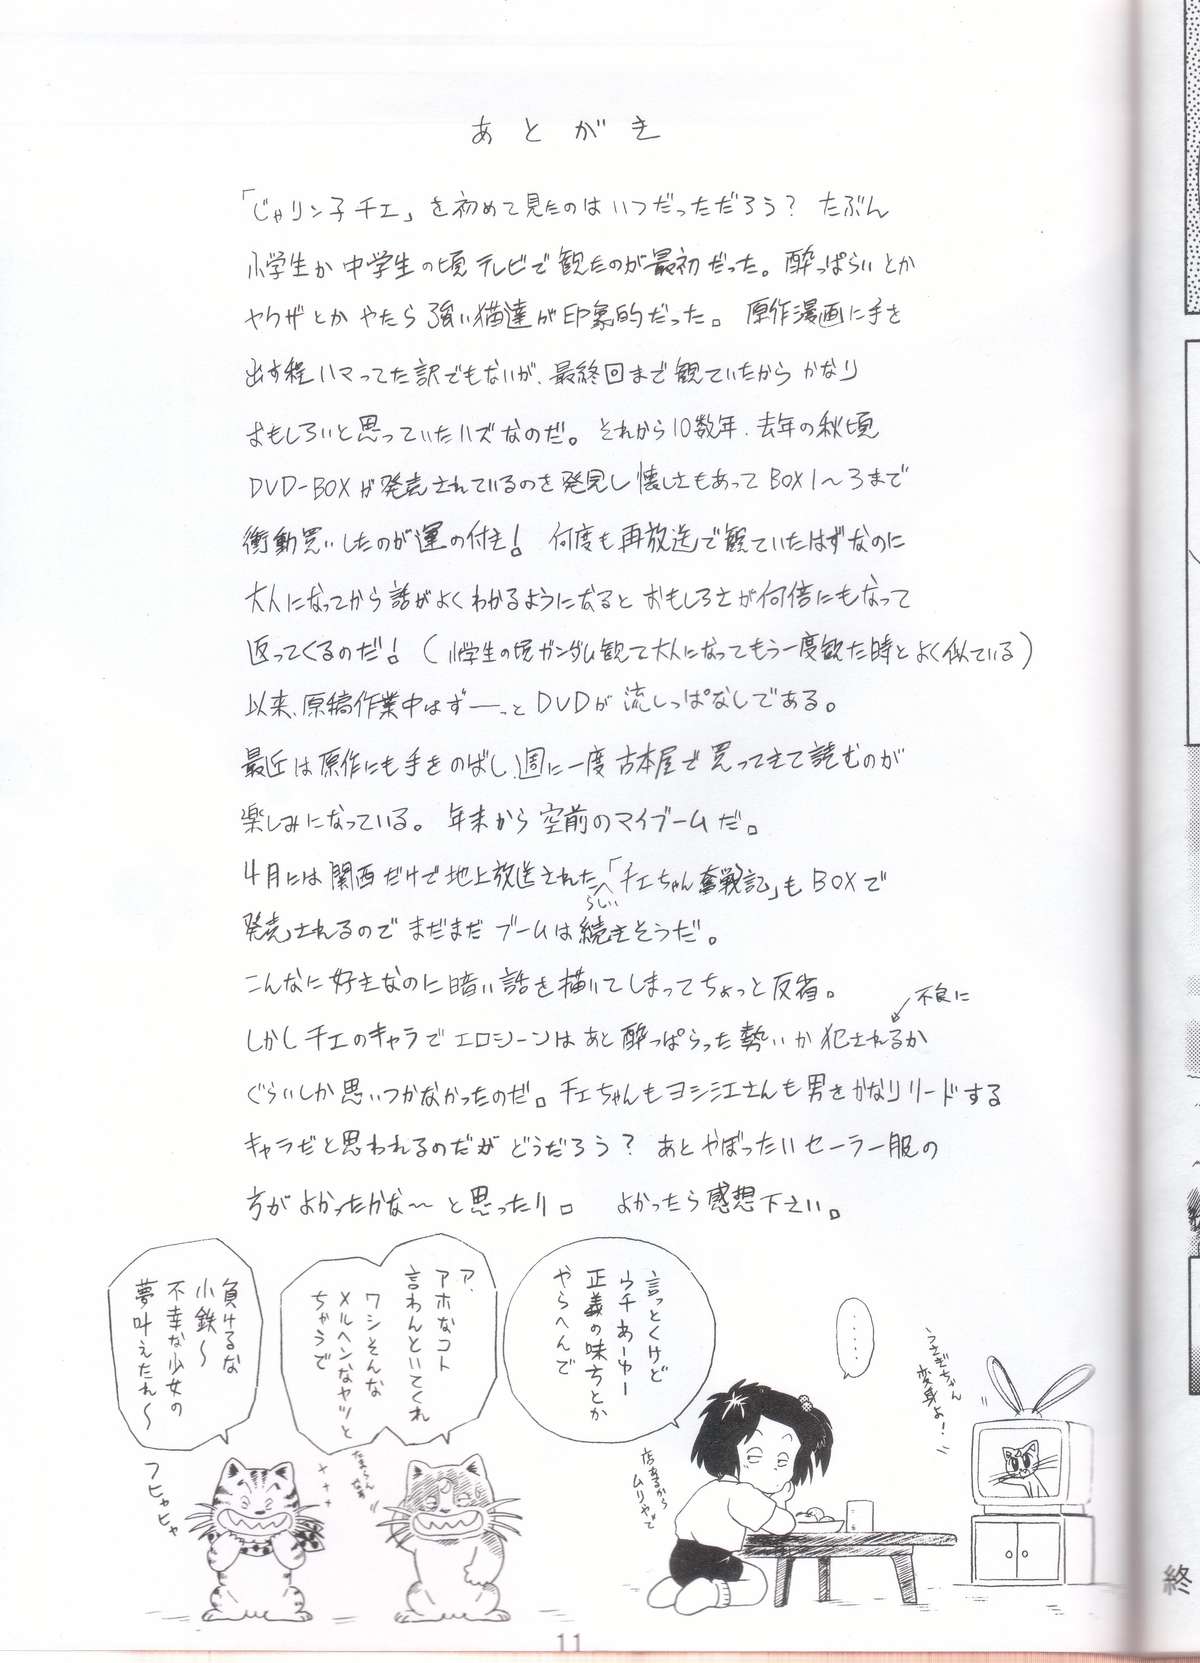 あとがき
「じゃリン子チエ」を初めて見たのはいつだっただろう？ たぶん
小学生か中学生の頃テレビで観たのが最初だった。酔っぱらいとか
ヤクザとかやたら強い猫達が印象的だった。 原作漫画に手を
出す程ハマってた訳でもないが、最終回まで観ていたからかなり
おもしろいと思っていたハズなのだ。それから10数年、去年の秋頃
DVD-BOXが発売されているのを発見し懐しさもあってBOX1～3まで
衝動買いしたのが運の付き！ 何度も再放送で観ていたはずなのに
大人になってから話がよくわかるようになるとおもしろさが何倍にもなって
返ってくるのだ！（小学生の頃ガンダム観て大人になってもう一度観た時とよく似ている）
以来、原稿作業中はずーーっとDVDが流しっぱなしである。
最近は原作にも手をのばし、週に一度古本屋で買ってきて読むのが
楽しみになっている。年末から空前のマイブームだ。
4月には関西だけで地上放送された「チエちゃん奮戦記」もBOXで
らしい
発売されるのでまだまだブームは続きそうだ。
こんなに好きなのに暗い話を描いてしまってちょっと反省。
不良に
しかしチエのキャラでエロシーンはあと酔っぱらった勢いか犯されるか
ぐらいしか思いつかなかったのだ。チエちゃんもヨシ江さんも男をかなりリードする
キャラだと思われるのだがどうだろう？ あとやぼったいセーラー服の
方がよかったかな～と思ったり。 よかったら感想下さい。
うさぎちゃん
変身よ！
‥‥‥
言っとくけど
ウチあーゆー
正義の味方とか
やらへんで
店あるから
ムリやで
ア、
アホなコト
言わんといてくれ
ワシそんな
メルヘンなヤツと
ちゃうで
負けるな
小鉄～
不幸な少女の
夢叶えたれ～
フヒャヒャ
11
終